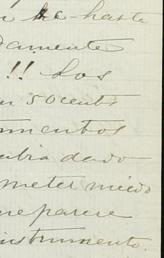 hasta
damente
!! Los
50 cents
mentos
bia dado
meter miedo
me parece
instrumento.